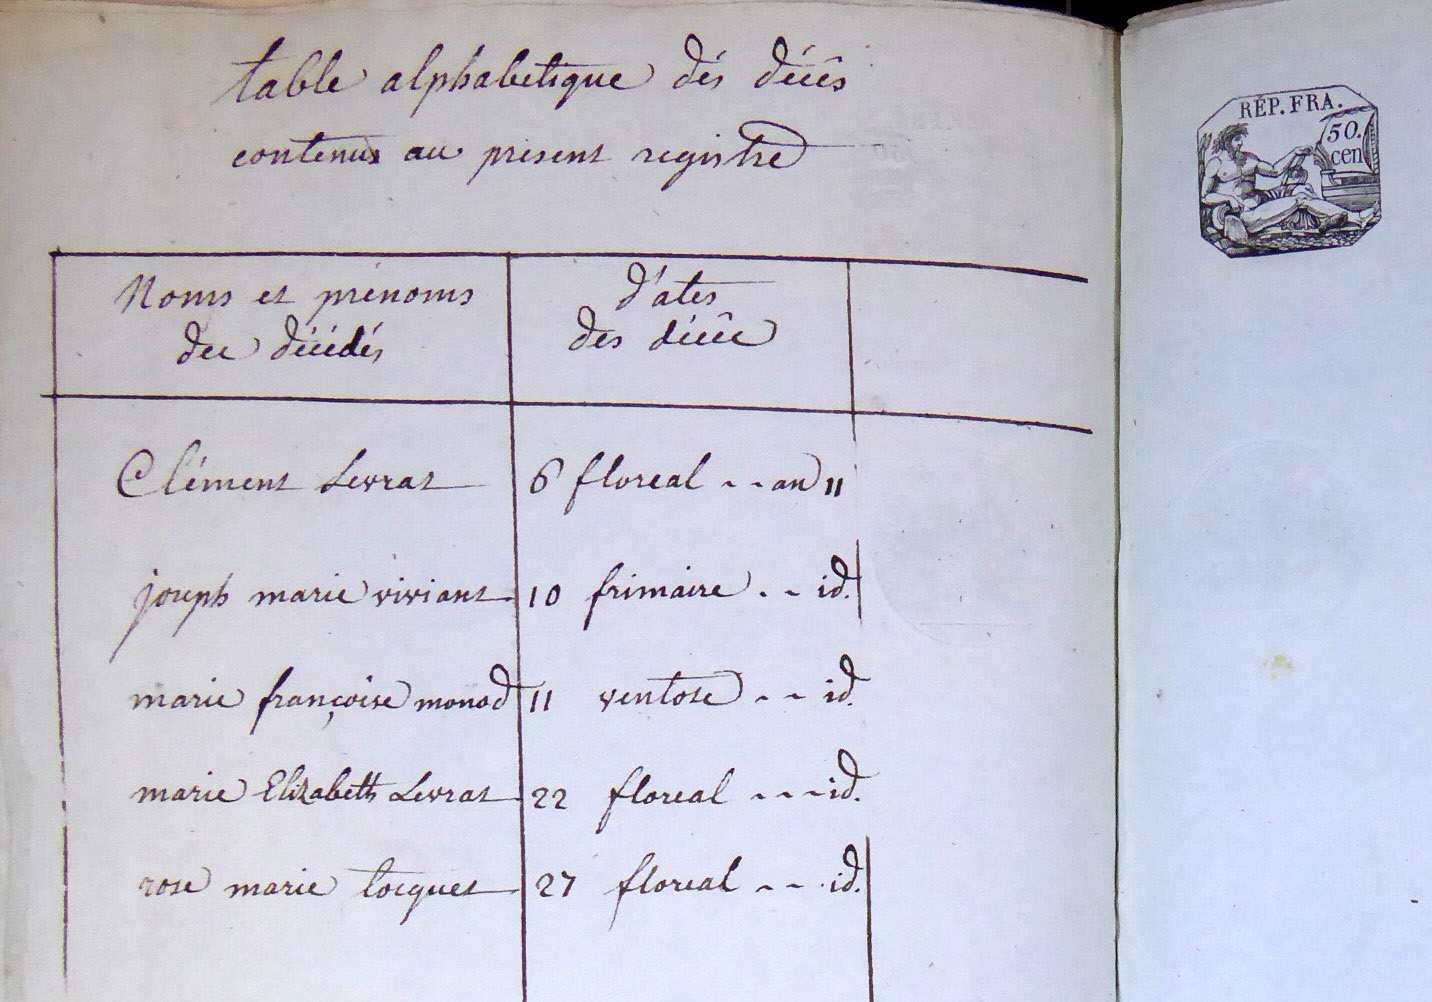 table alphabetique dés décès
contenus au present registre
Noms et prénoms
des décédés
d'ates
des décès
Clément Levrat 6 floreal - - an 11
joseph marie viviant 10 frimaire - - id.
marie françoise monod 11 ventose - - id.
marie Elizabeth Levrat 22 floreal - - - id.
rose marie tocquet 27 floreal - - id.
RÉP. FRA.
50.
cen